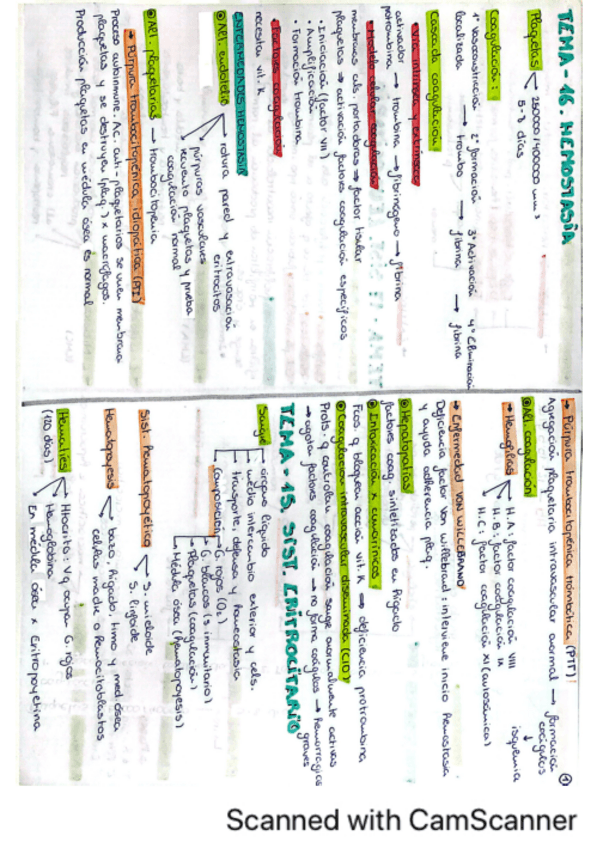 TEMA - 16. HEMOSTASIA
Plaquetas
250000/400000 mm3
5-8 días
Coagulación:
1º vasoconstricción localizada → 2º formación trombo → 3º Activación fibrina → 4º Eliminación fibrina
Cascada coagulación
Vía intrínseca y extrínseca
activador protrombina → trombina → fibrinógeno → fibrina
Modelo celular coagulación
membranas cels. portadoras → factor tisular
plaquetas → activación factores coagulación específicos
· Iniciación (factor VII)
· Amplificación
· Formación trombina
Factores coagulación
necesitan vit. K
ENFERMEDADES HEMOSTASIA
Aft. endotelio
rotura pared y extravasación eritrocitos
púrpuras vasculares
recuento plaquetas y prueba coagulación normal
Aft. plaquetarias → trombocitopenia
→ Púrpura trombocitopénica idiopática (PTI)
Proceso autoinmune. Ac. anti-plaquetarios se unen membrana
plaquetas y se destruyen (plaq.) x macrófagos.
Producción plaquetas en médula ósea es normal
→ Púrpura trombocitopénica trombótica (PTT)
Agregación plaquetaria intravascular anormal → formación coágulos
↓
isquemia
Aft. coagulación
→ Hemofilias
H.A: factor coagulación VIII
H.B: factor coagulación IX
H.C: factor coagulación XI (autosómico)
→ Enfermedad VON WILLEBRAND
Deficiencia factor von willebrand: interviene inicio hemostasia
y ayuda adherencia plaq.
Hepatopatías
factores coag. sintetizados en hígado
Intoxicación x cumarínicos
Fcos. q bloquean acción vit. K → deficiencia protrombina
Coagulación intravascular diseminada (CID)
Prots. q controlan coagulación sangre anormalmente activas
→ agotar factores coagulación → no forma coágulos → hemorragias graves
TEMA - 15. SIST. ERITROCITARIO
Sangre
órgano líquido
medio intercambio exterior y cels.
transporte, defensa y homeostasia
Composición
G. rojos (O2)
G. blancos (S. inmunitario)
Plaquetas (coagulación)
Médula ósea (hematopoyesis)
Sist. hematopoyético
S. mieloide
S. linfoide
Hematopoyesis
bazo, hígado, timo y med. ósea
células madre o hemocitoblastos
Hematíes
(120 días)
Htocrito: Vq ocupa G. rojos
Hemoglobina
En médula ósea x Eritropoyetina
Scanned with CamScanner